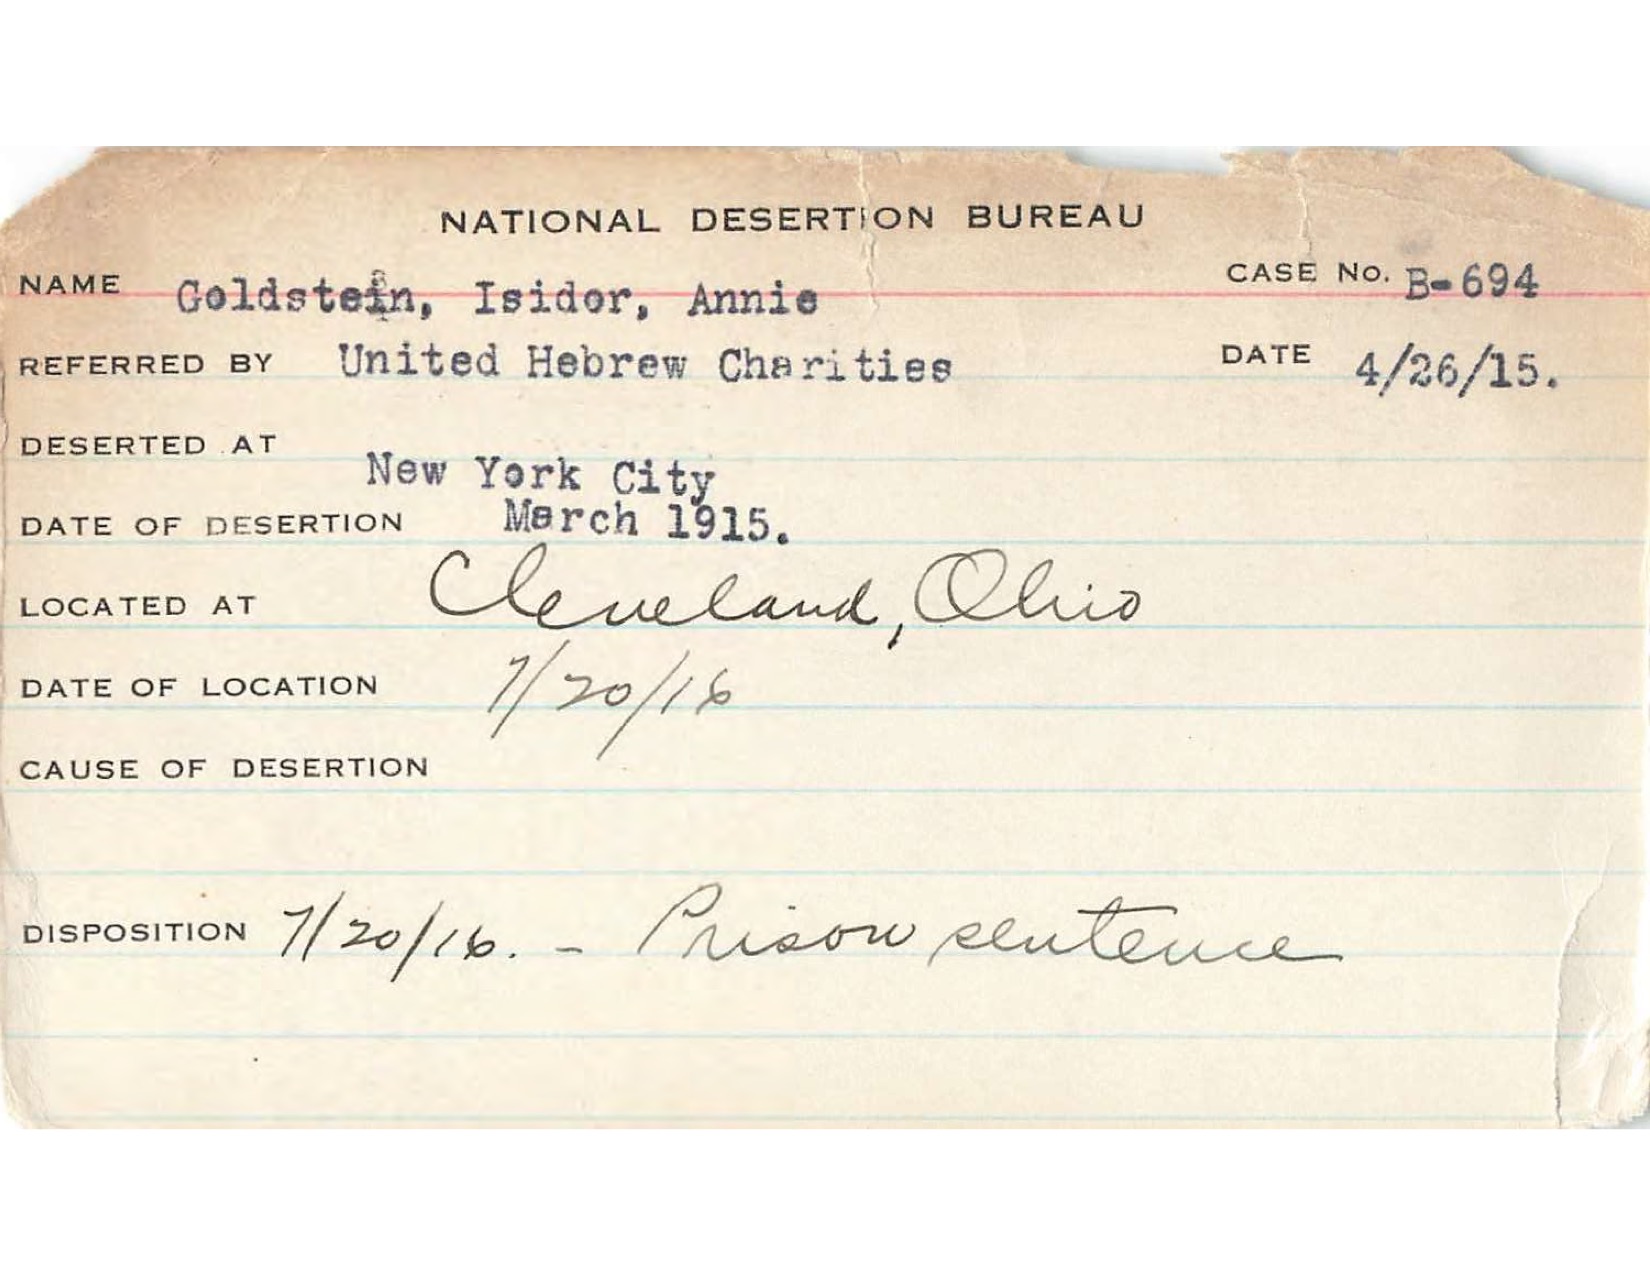 NATIONAL DESERTION BUREAU
NAME Goldstein, Isidor, Annie CASE No. B-694
REFERRED BY United Hebrew Charities DATE 4/26/15.
DESERTED AT New York City
DATE OF DESERTION March 1915.
LOCATED AT Cleveland, Ohio
DATE OF LOCATION 7/20/16
CAUSE OF DESERTION
DISPOSITION 7/20/16. - Prison sentence